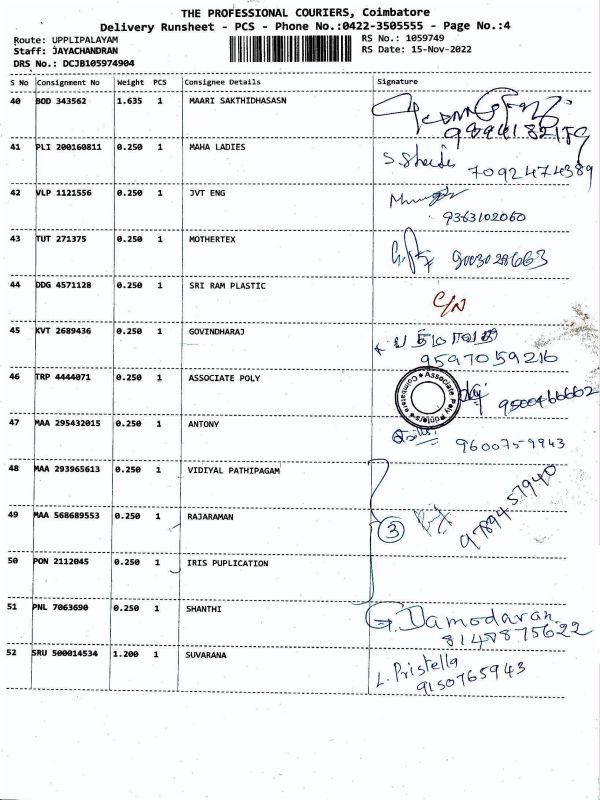 THE PROFESSIONAL COURIERS, Coimbatore
Delivery Runsheet - PCS - Phone No.:0422-3505555 - Page No.:4
Route: UPPLIPALAYAM
RS No.: 1059749
Staff: JAYACHANDRAN
RS Date: 15-Nov-2022
DRS No.: DCJB105974904
S No Consignment No Weight PCS Consignee Details Signature
40 BOD 343562 1.635 1 MAARI SAKTHIDHASASN
41 PLI 200160811 0.250 1 MAHA LADIES
7092474389
42 VLP 1121556 0.250 1 JVT ENG
9363102060
43 TUT 271375 0.250 1 MOTHERTEX
9003028663
44 DDG 4571128 0.250 1 SRI RAM PLASTIC
C/N
45 KVT 2689436 0.250 1 GOVINDHARAJ
9597059216
46 TRP 4444071 0.250 1 ASSOCIATE POLY
Associate Poly
Coimbatore
9500466662
47 MAA 295432015 0.250 1 ANTONY
9600759943
48 MAA 293965613 0.250 1 VIDIYAL PATHIPAGAM
49 MAA 568689553 0.250 1 RAJARAMAN
3
9789457940
50 PON 2112045 0.250 1 IRIS PUPLICATION
51 PNL 7063690 0.250 1 SHANTHI
G. Damodaran
8148875622
52 SRU 500014534 1.200 1 SUVARANA
L. Pristella
9150765943